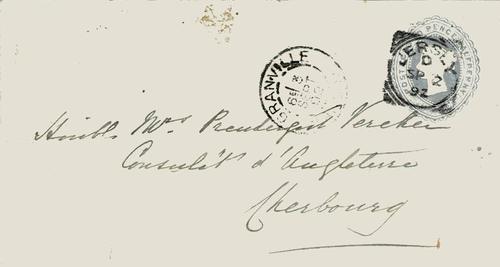 GRANVILLE
JERSEY
D
SP 2
92
PENCE HALFPENNY
Honble Mrs Prendergast Vereker
Consulat d'Angleterre
Cherbourg